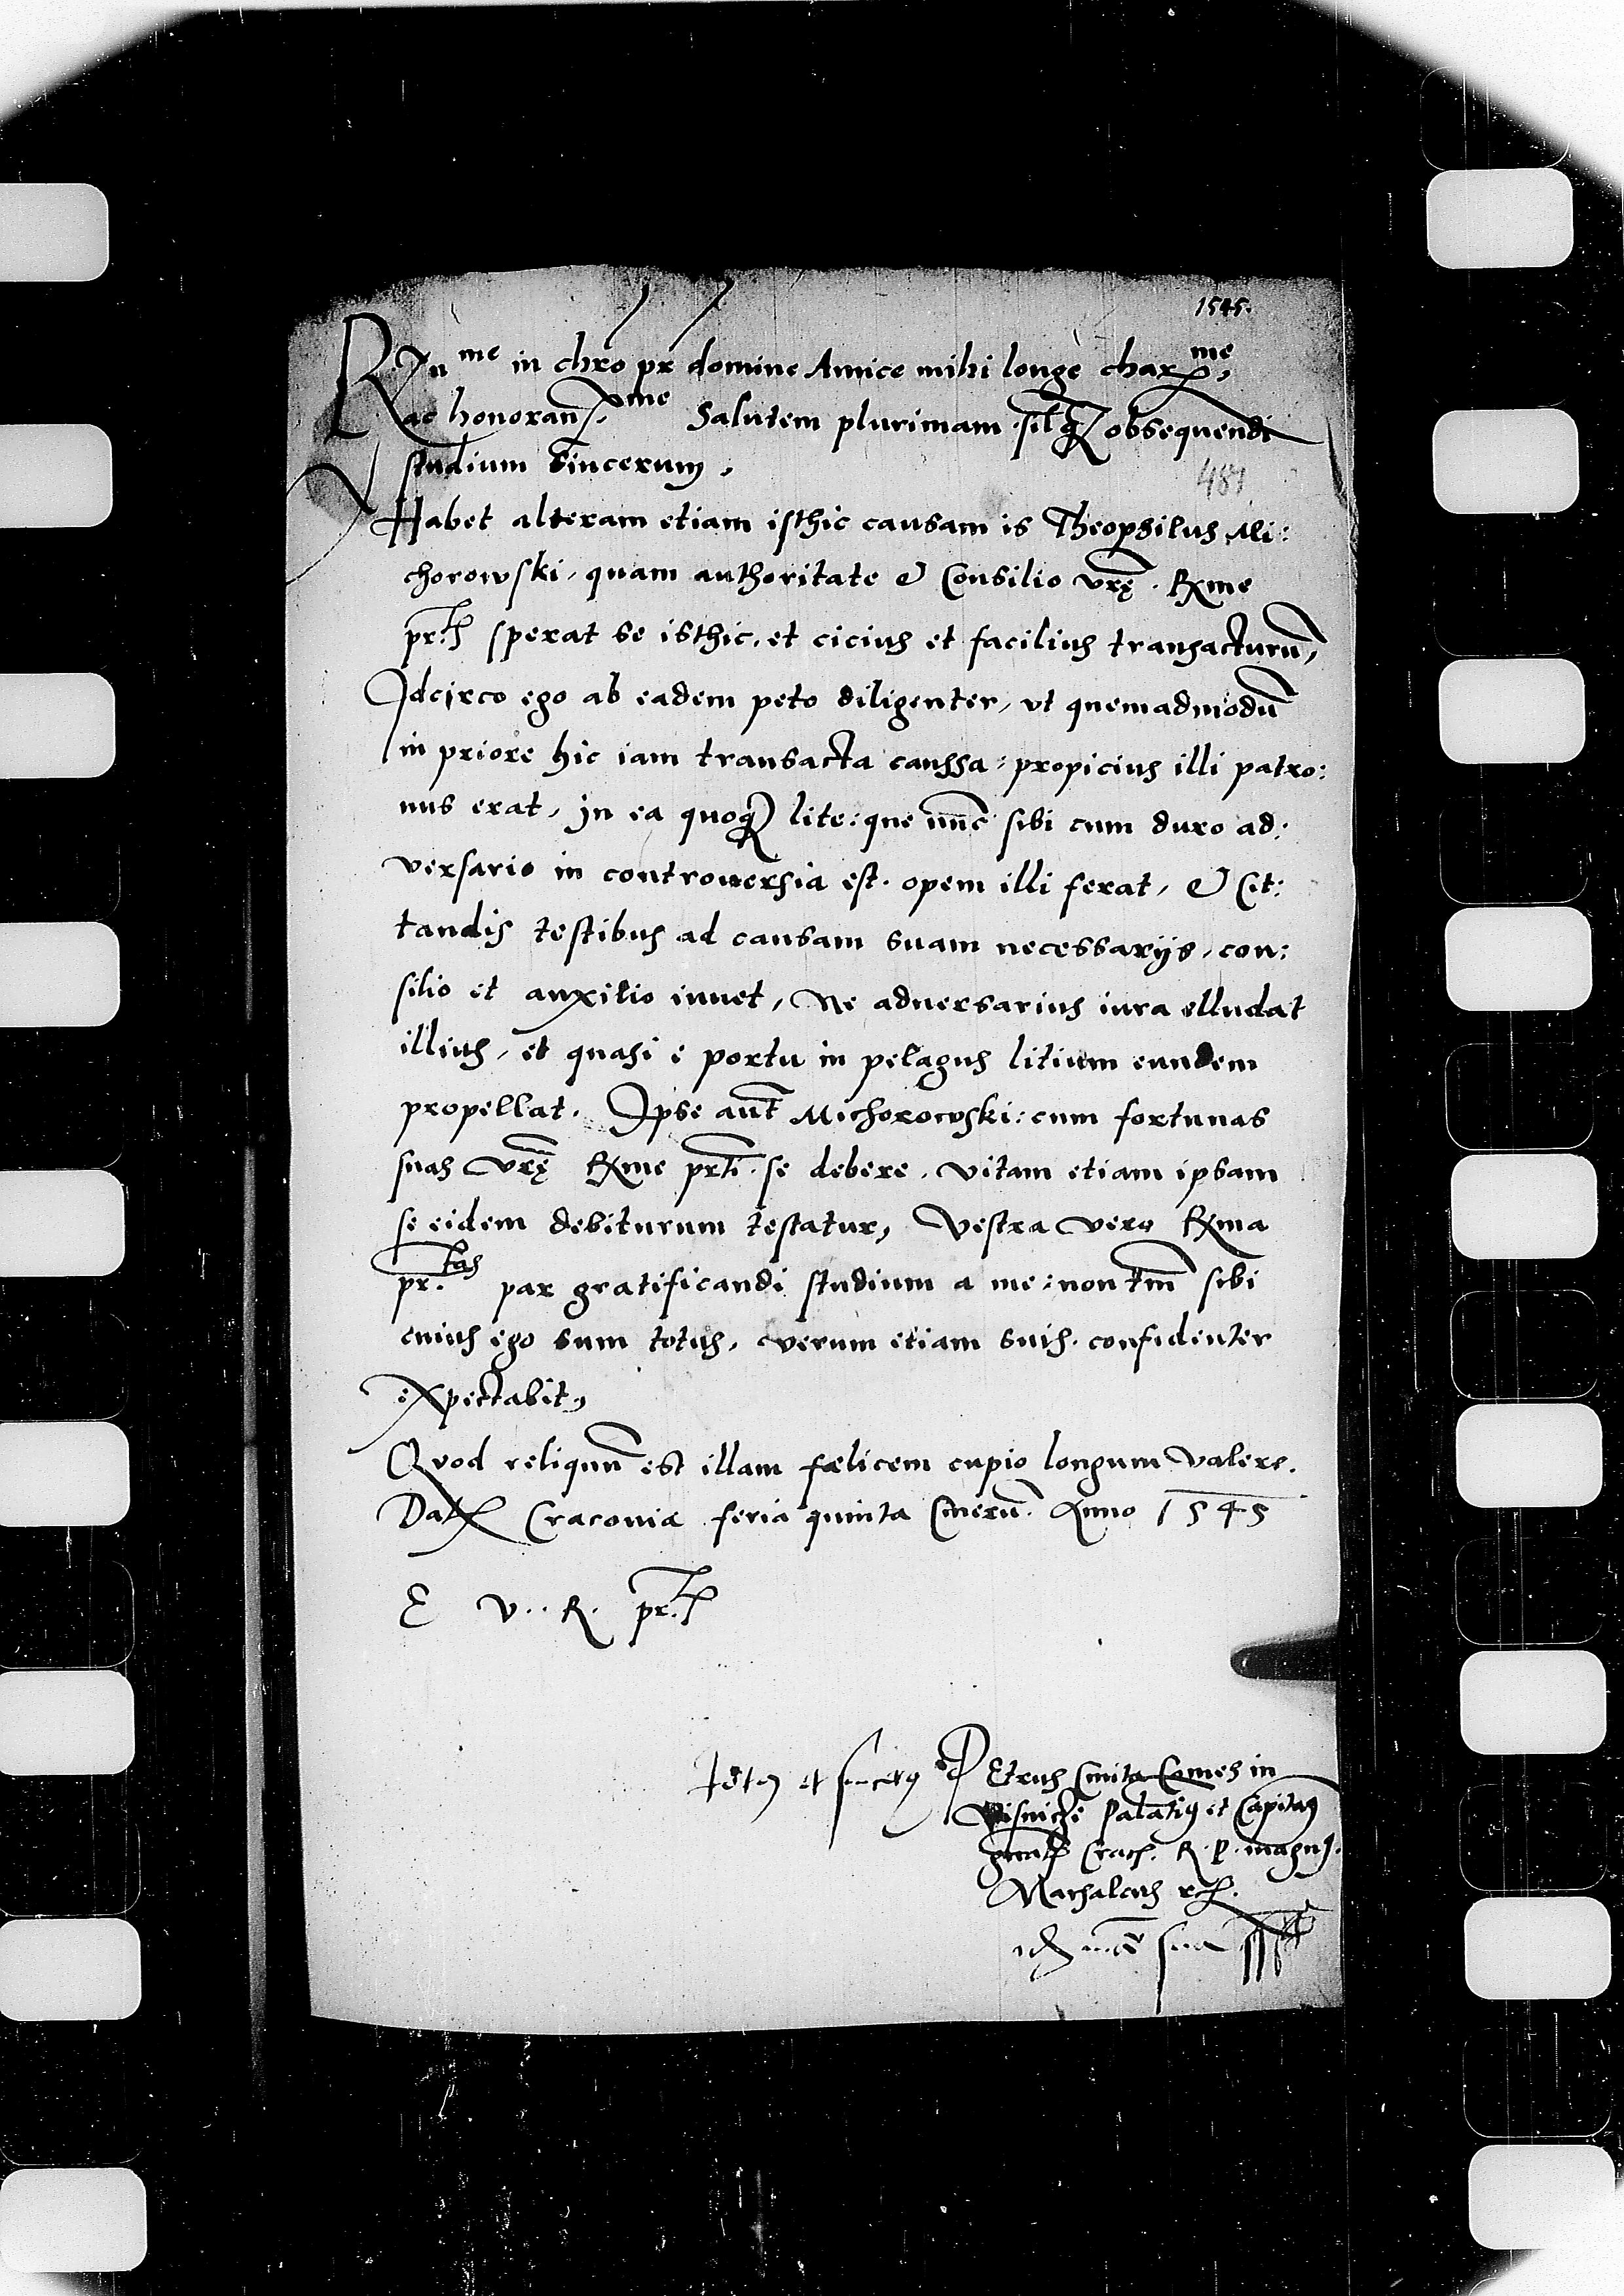 1545.
R In me in chro pr domine Amice mihi longè char me,
ac honoran. me Salutem plurimam. sitq obsequendi
studium Sincerum,
481
Habet alteram etiam isthic causam is Theophilus Mi:
chorowski, quam authoritate & Consilio vrę. Rme
pr. sperat se isthic, et cicius et facilius transacturũ,
Idcirco ego ab eadem peto diligenter, vt quemadmodũ
in priore hic iam transacta caussa: propicius illi patro:
nus erat, in ea quoq lite: que nũc sibi cum duro ad:
versario in controuersia est. opem illi ferat, & Cit:
tandis testibus ad causam suam necessarijs, con:
silio et auxilio iuuet, Ne aduersarius iura elludat
illius, et quasi e portu in pelagus litium eundem
propellat. Ipse aut̃ Michorowski: cum fortunas
suas vrę Rme prti. se debere. vitam etiam ipsam
se eidem debiturum testatur, Vestra vero Rma
pr. tas par gratificandi studium a me: non tm̃ sibi
cuius ego sum totus, verum etiam suis. confidenter
expectabit,
Quod reliquũ est illam fœlicem cupio longum valere.
Dat Cracouia feria quinta Cinerũ. Anno 1545
E V.. R. pr.
Petrus Cmita Comes in
Visnicze Palatĩ et Capita
gnal Crac. R. P. magn.
Marsalcus
sua